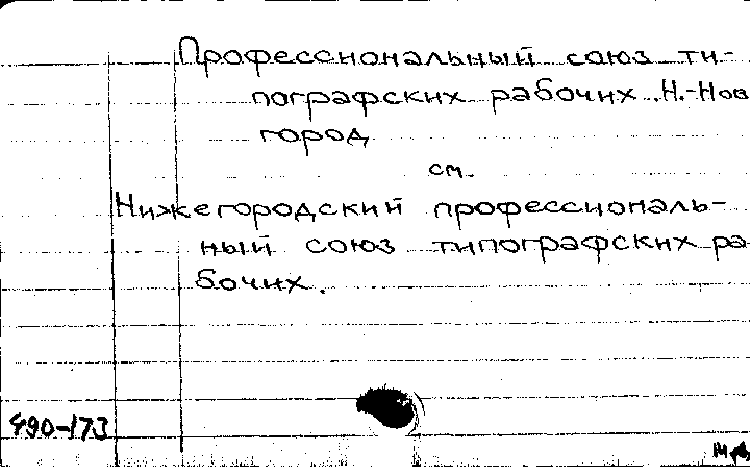 Профессиональный союз ти-
пографских рабочих. Н.-Нов
город
см.
Нижегородский профессиональ-
ный союз типографских ра
бочих.
490-173